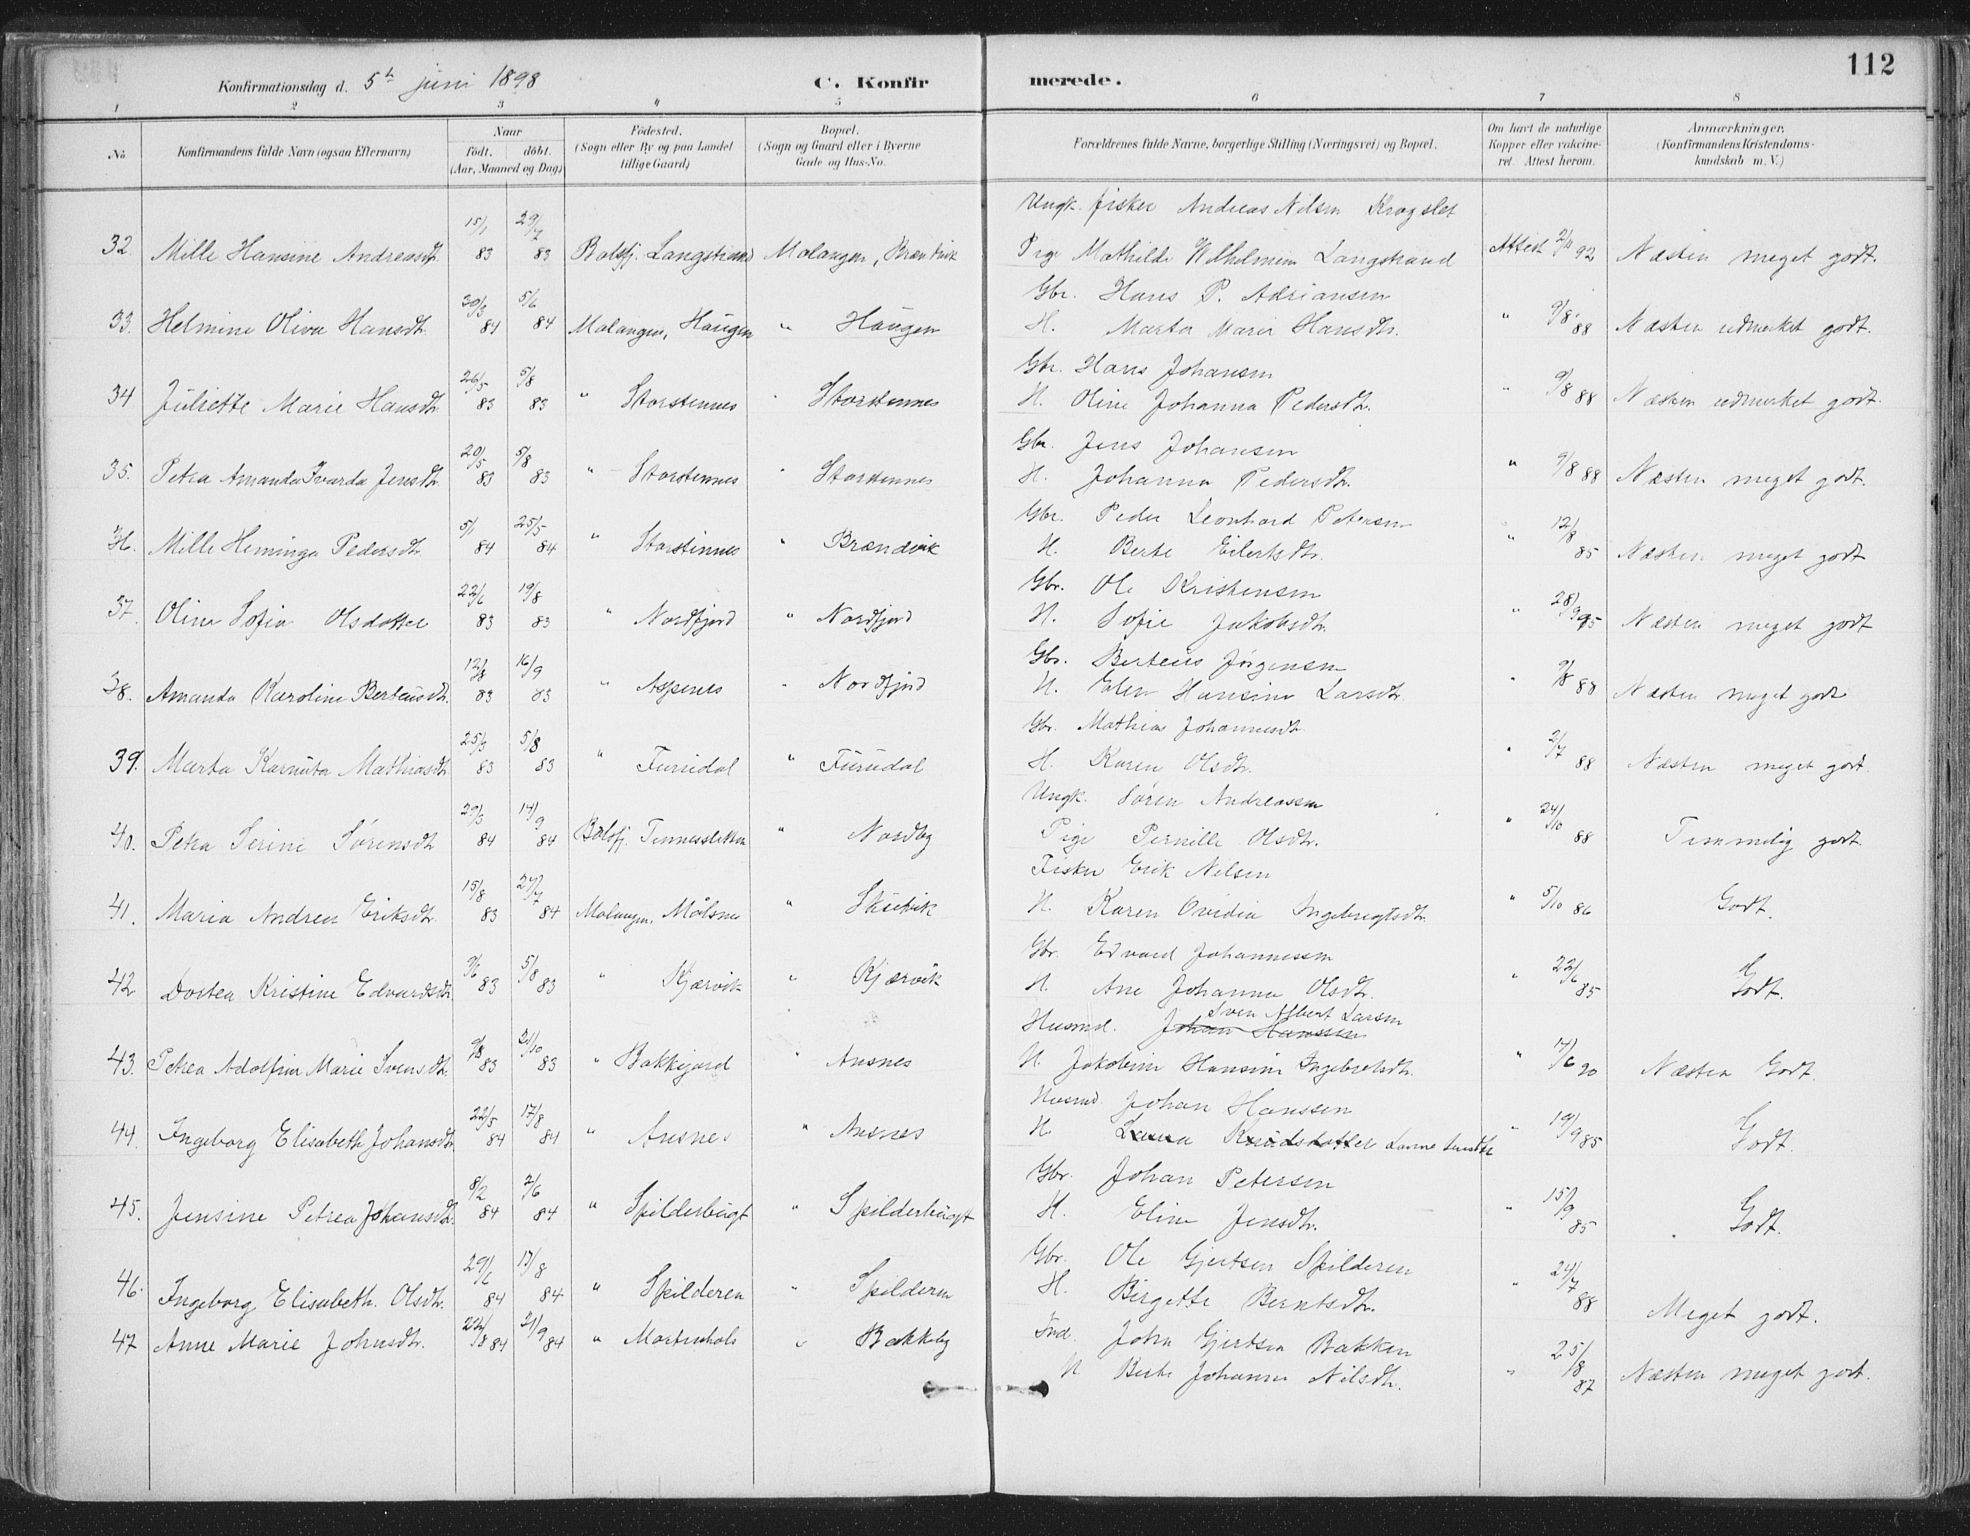 112
Konfirmationsdag d. 5te juni 1898 C. Konfirmerede.
1 2 3 4 5 6 7 8
No Konfirmandens fulde Navn (ogsaa Efternavn) Naar født. døbt. (Aar, Maaned og Dag) Fødested. (Sogn eller By og paa Landet tillige Gaard) Bopæl. (Sogn og Gaard eller i Byerne Gade og Hus-No. Forældrenes fulde Navne, borgerlige Stilling (Næringsvei) og Bopæl. Om havt de naturlige Kopper eller vakcineret. Attest herom. Anmærkninger. (Konfirmandens Kristendomskundskab m. V.)
Ungk. fisker Andreas Nilsen Kragslet
32. Mille Hansine Andreasdt. 15/1 83 29/7 83 Balsfj. Langstrand Malangen, Brændvik Pige Mathilde Wilhelmine Langstrand Attest 2/11 92 Næsten meget godt.
Gbr. Hans P. Adriansen
33. Helmine Oliva Hansdt. 30/3 84 5/6 84 Malangen, Haugen " Haugen H. Marta Marie Hansdtr. " 9/8 88 Næsten udmerket godt.
Gbr. Hans Johansen
34 Juliette Marie Hansdtr. 26/5 83 5/8 83 " Storstennes " Storstennes H. Oline Johanna Pedersdtr. " 9/8 88 Næsten udmerket godt.
Gbr. Jens Johansen
35. Petra Amanda Ivarda Jensdtr 20/5 83 5/8 83 " Storstennes " Storstennes H. Johanna Pedersdtr. " 9/8 88 Næsten meget godt.
Gbr. Peder Leonhard Petersen
36. Mille Heminga Pedersdtr. 5/1 84 25/5 84 " Storstinnes " Brændvik H. Berte Eilertsdtr. " 12/8 85 Næsten meget godt
Gbr. Ole Kristensen
37. Oline Sofie Olsdatter 22/6 83 19/8 83 " Nordfjord " Nordfjord H. Sofie Jakobsdtr. " 28/9 95 Næsten meget godt
Gbr. Berteus Jørgensen
38. Amanda Karoline Berteusdt. 12/8 83 16/9 83 " Aspenes " Nordfjord H. Elen Hansine Larsdtr. " 9/8 88 Næsten meget godt
Gbr. Mathias Johannesdt.
39. Marta Karnuta Mathiasdtr. 25/3 83 5/8 83 " Furudal " Furudal H. Karen Olsdtr. " 2/7 88 Næsten meget godt.
Ungk. Søren Andreassen
40. Petra Serine Sørensdtr. 29/3 84 14/9 84 Balsfj. Tennessletten " Nordby Pige Pernille Olsdtr. " 24/10 88 Temmelig godt.
Fisker Erik Nilsen
41. Maria Andrea Eriksdtr. 15/8 83 27/7 84 Malangen, Målsnes " Skutvik H. Karen Ovidia Ingebrigtsdtr. " 5/10 86 Godt.
Gbr. Edvard Johannessen
42 Dortea Kristine Edvardsdtr. 9/6 83 5/8 83 " Kjærvik " Kjærvik H. Ane Johanna Olsdtr. " 22/6 85 Godt.
Husmd. Johan Hanssen Sven Albert Larsen
43. Petrea Adolfine Marie Svensdt. 9/8 83 21/10 83 " Bakkejord " Ansnes H. Jakobine Hansine Ingebretsdtr. " 17/6 90 Næsten Godt.
Husmd. Johan Hanssen
44. Ingeborg Elisabeth Johansdtr. 22/5 84 17/8 84 " Ansnes " Ansnes H. Laura Knudsdatter " 19/9 85 Godt.
Gbr. Johan Petersen
45. Jensine Petrea Johansdtr. 8/2 84 2/6 84 " Spilderbugt " Spilderbugt H. Eline Jensdtr. " 15/9 85 Godt.
Gbr. Ole Gjertsen Spilderen
46. Ingeborg Elisabeth. Olsdtr. 29/6 84 17/8 84 " Spilderen " Spilderen H. Birgette Berntsdtr. " 24/7 88 Meget godt.
Ind. John Gjertsen Bakken
47 Anne Marie Johnsdtr. 22/8 84 21/9 84 " Mortenhals " Bakkeby H Berte Johanne Nilsdtr. " 25/8 87 Næsten meget godt.